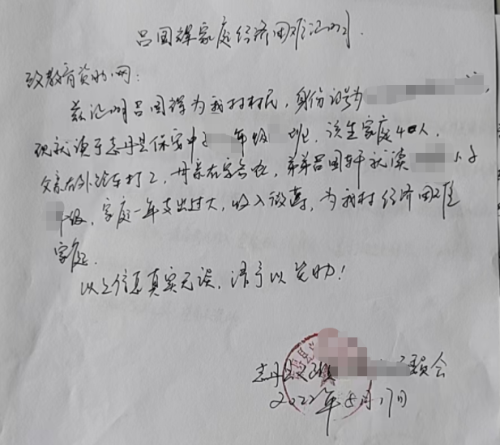 吕国辉家庭经济困难证明
致教育资助网:
兹证明吕国辉为我村村民,身份证号为
现就读于志丹县保安中 年级 班,该生家庭4口人,
父亲在外给车打工,母亲在家务农,弟弟吕国轩就读 小学
年级,家庭一年支出过大,收入微薄,为我村经济困难
家庭.
以上信息真实无误,请予以资助!
志丹县 委员会
2022年8月17日